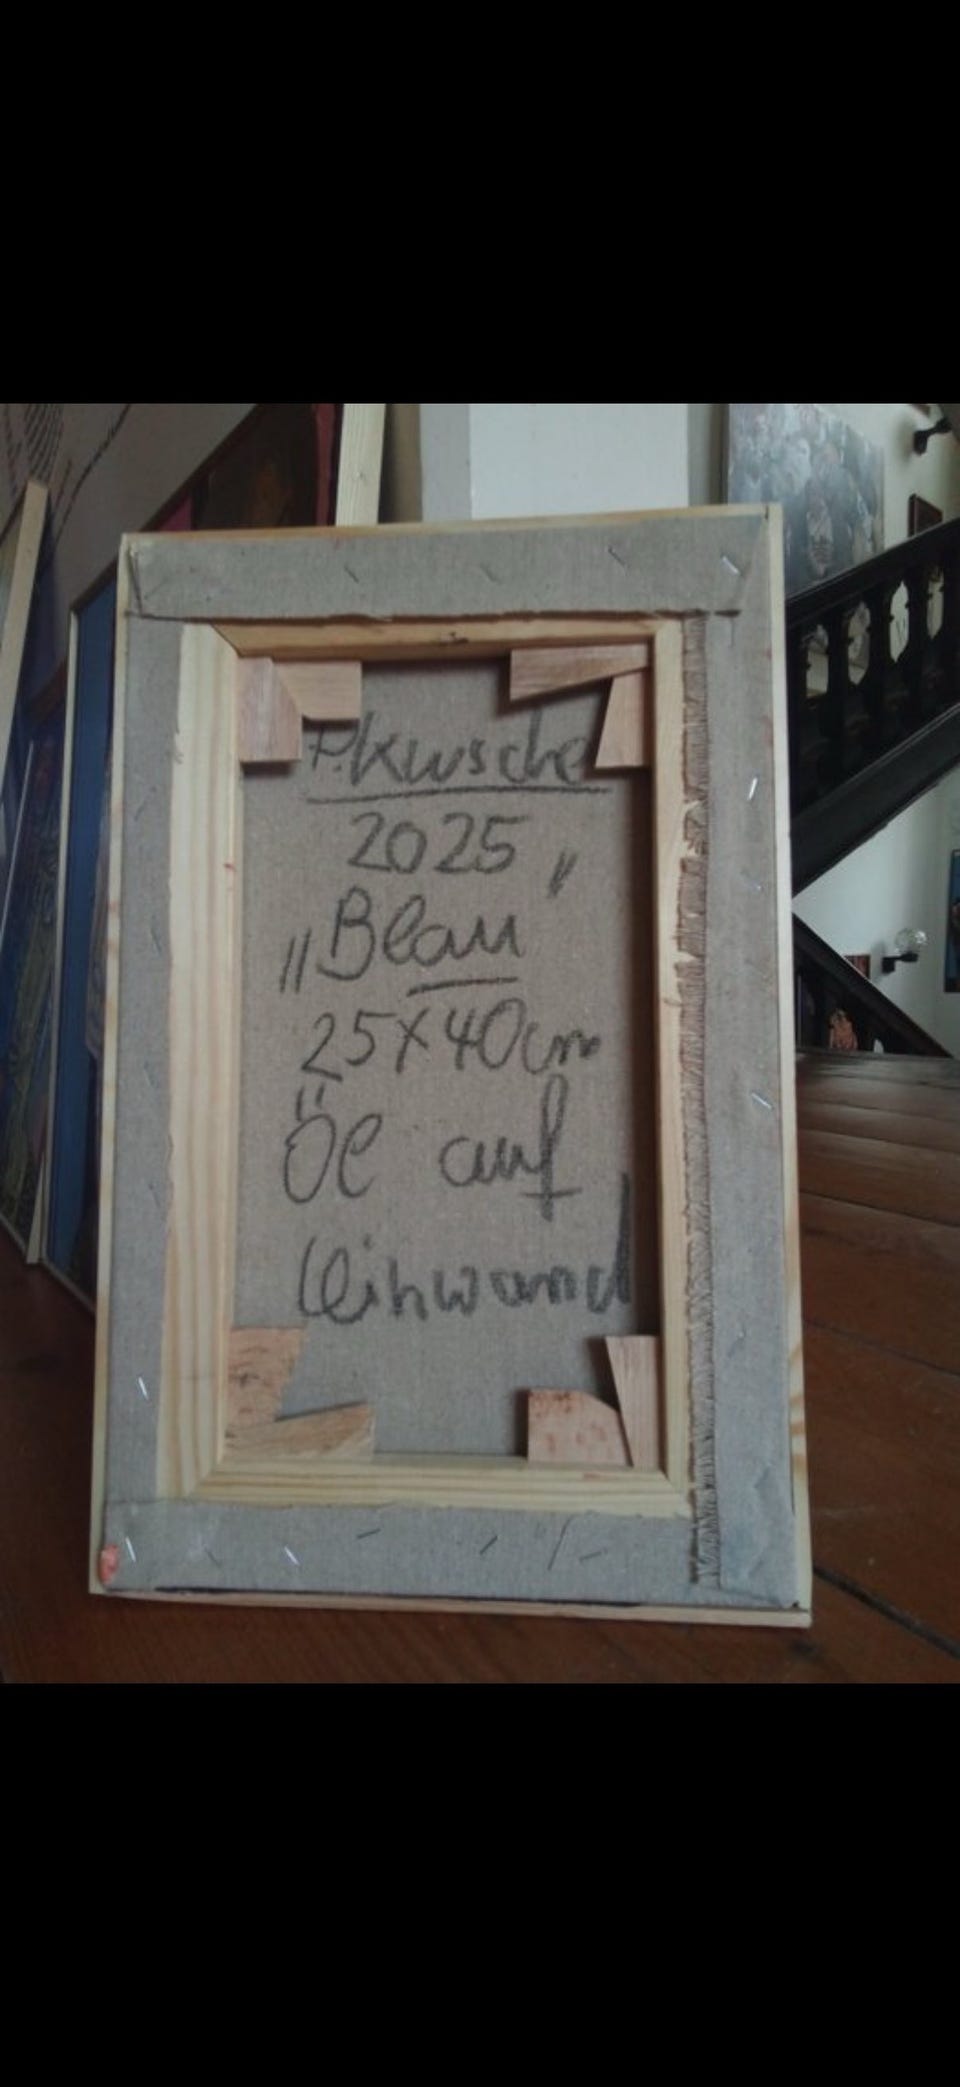 P. Kusche
2025
„Blau"
25X40cm
Öl auf
Leinwand